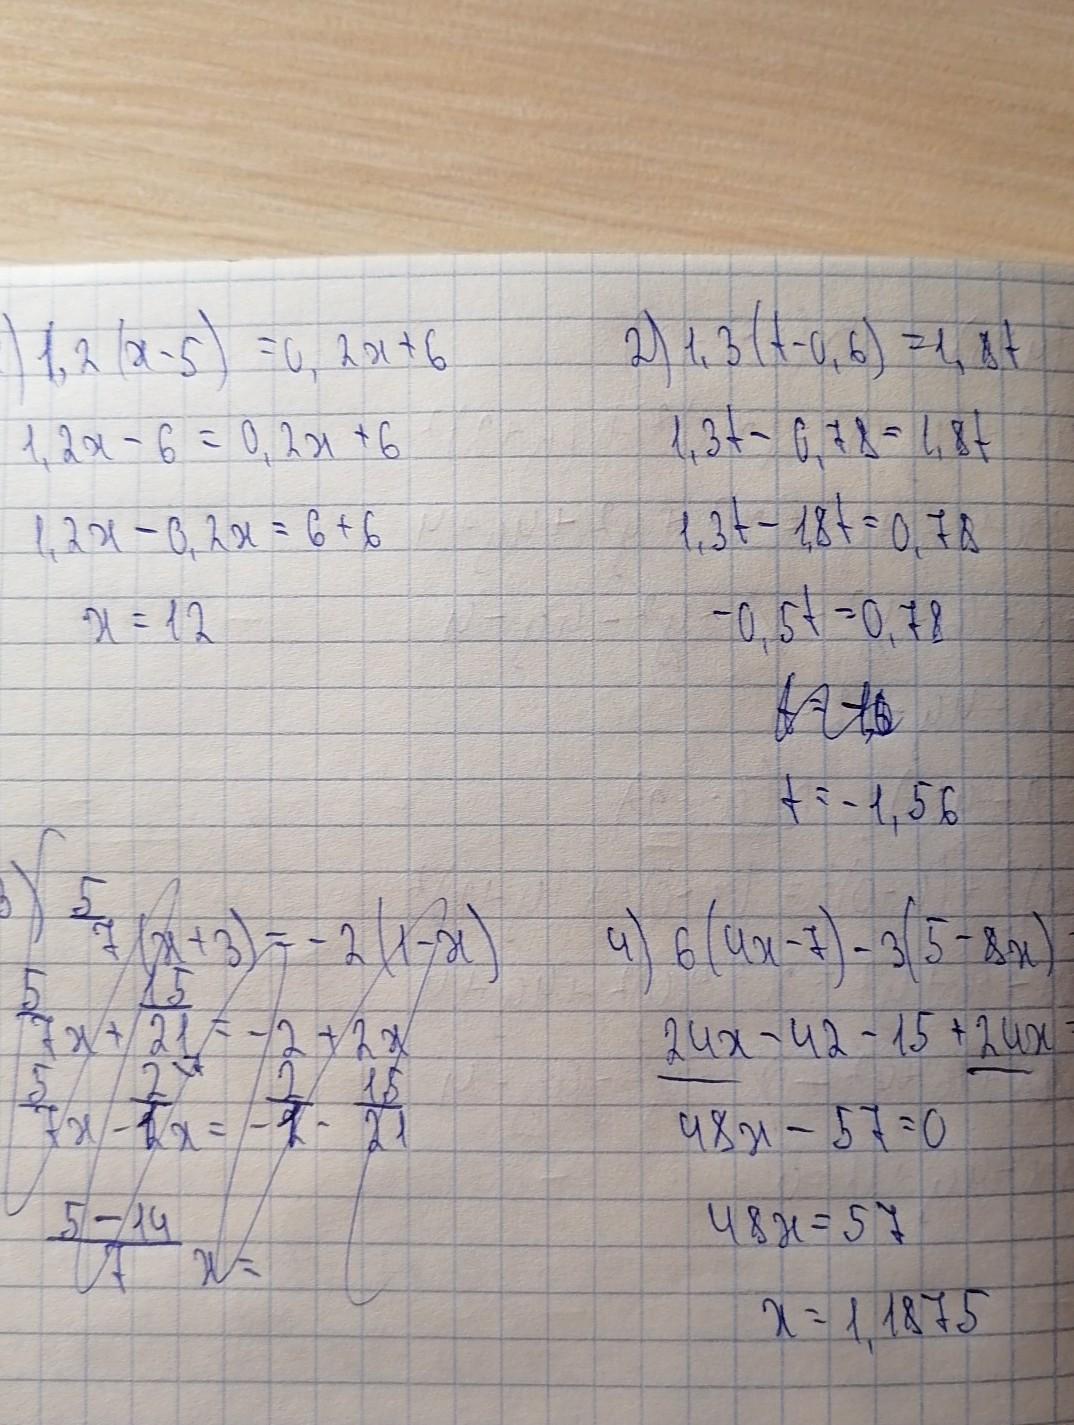 ) 1,2(x-5) = 0,2x+6
1,2x - 6 = 0,2x + 6
1,2x - 0,2x = 6+6
x = 12
2) 1,3(t-0,6) = 1,8t
1,3t - 0,78 = 1,8t
1,3t - 1,8t = 0,78
-0,5t = 0,78
t = -1,56
3) 5/7(x+3) = -2(1-x)
5/7x + 15/21 = -2 + 2x
5/7x - 2/1x = -2/1 - 15/21
5-14/7 x =
4) 6(4x-7) - 3(5-8x)
24x - 42 - 15 + 24x =
48x - 57 = 0
48x = 57
x = 1,1875